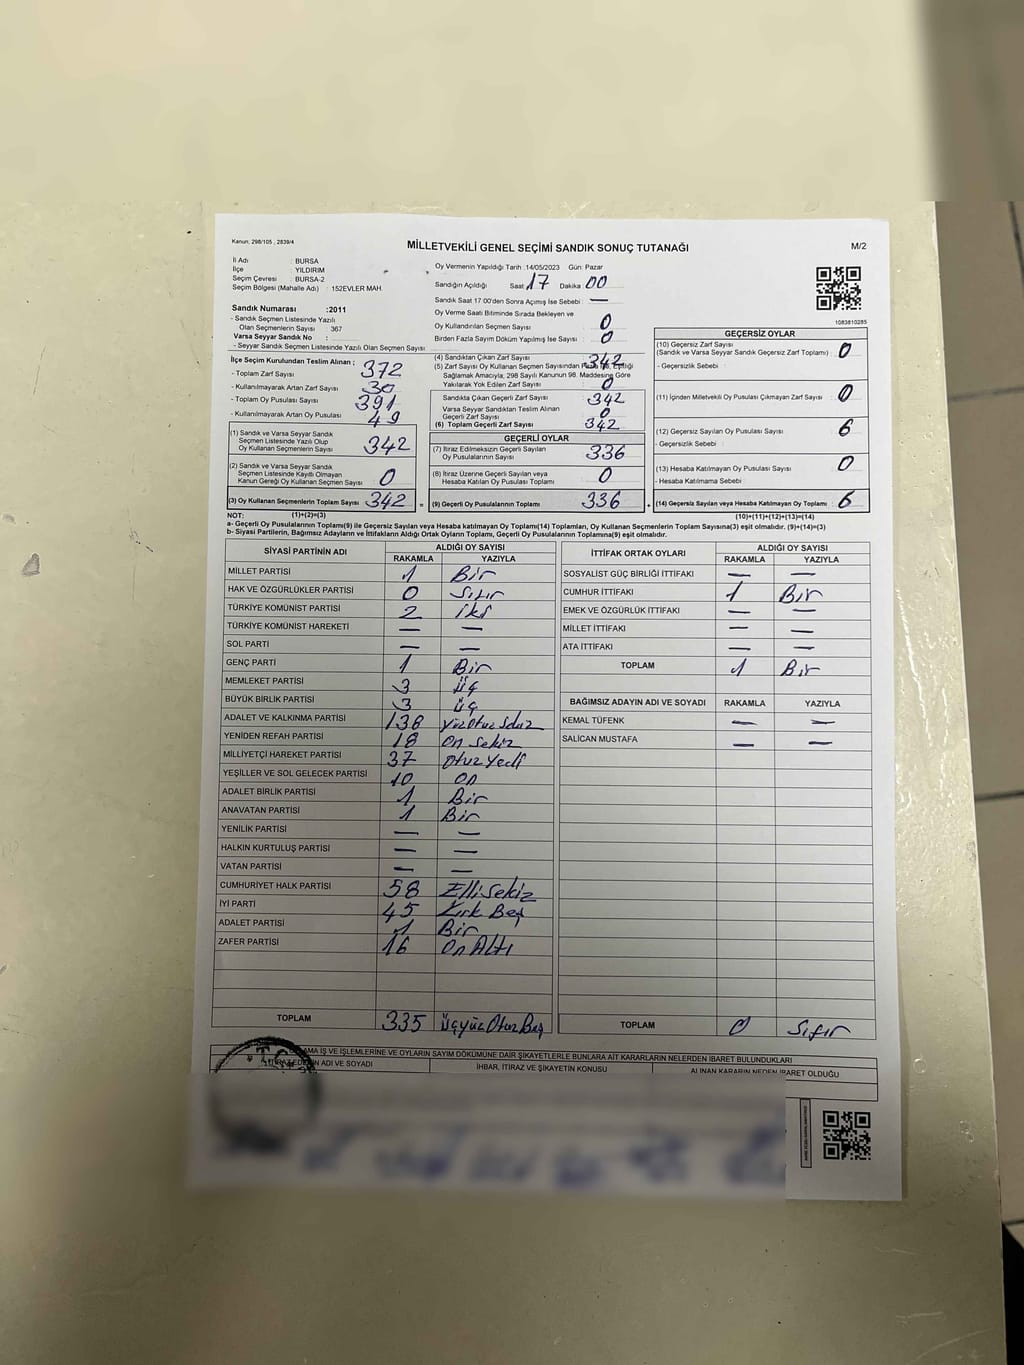 Kanun: 298/105 , 2839/4
MİLLETVEKİLİ GENEL SEÇİMİ SANDIK SONUÇ TUTANAĞI
M/2
İl Adı : BURSA
İlçe : YILDIRIM
Seçim Çevresi : BURSA-2
Seçim Bölgesi (Mahalle Adı) : 152EVLER MAH.
Oy Vermenin Yapıldığı Tarih :14/05/2023 Gün: Pazar
Sandığın Açıldığı Saat 17 Dakika: 00
Sandık Saat 17 00'den Sonra Açılmış İse Sebebi : —
Oy Verme Saati Bitiminde Sırada Bekleyen ve
Oy Kullandırılan Seçmen Sayısı : 0
Birden Fazla Sayım Döküm Yapılmış İse Sayısı : 0
1083810285
Sandık Numarası :2011
- Sandık Seçmen Listesinde Yazılı
Olan Seçmenlerin Sayısı : 367
Varsa Seyyar Sandık No :
- Seyyar Sandık Seçmen Listesinde Yazılı Olan Seçmen Sayısı :
İlçe Seçim Kurulundan Teslim Alınan ;
- Toplam Zarf Sayısı : 372
- Kullanılmayarak Artan Zarf Sayısı : 30
- Toplam Oy Pusulası Sayısı : 391
- Kullanılmayarak Artan Oy Pusulası : 49
(1) Sandık ve Varsa Seyyar Sandık
Seçmen Listesinde Yazılı Olup
Oy Kullanan Seçmenlerin Sayısı : 342
(2) Sandık ve Varsa Seyyar Sandık
Seçmen Listesinde Kayıtlı Olmayan
Kanun Gereği Oy Kullanan Seçmen Sayısı : 0
(3) Oy Kullanan Seçmenlerin Toplam Sayısı : 342
(4) Sandıktan Çıkan Zarf Sayısı : 342
(5) Zarf Sayısı Oy Kullanan Seçmen Sayısından Fazla İse, Eşitliği
Sağlamak Amacıyla; 298 Sayılı Kanunun 98. Maddesine Göre
Yakılarak Yok Edilen Zarf Sayısı : 0
Sandıkta Çıkan Geçerli Zarf Sayısı : 342
Varsa Seyyar Sandıktan Teslim Alınan
Geçerli Zarf Sayısı : 0
(6) Toplam Geçerli Zarf Sayısı : 342
GEÇERLİ OYLAR
(7) İtiraz Edilmeksizin Geçerli Sayılan
Oy Pusulalarının Sayısı : 336
(8) İtiraz Üzerine Geçerli Sayılan veya
Hesaba Katılan Oy Pusulaları Toplamı : 0
= (9) Geçerli Oy Pusulalarının Toplamı : 336
GEÇERSİZ OYLAR
(10) Geçersiz Zarf Sayısı
(Sandık ve Varsa Seyyar Sandık Geçersiz Zarf Toplamı) : 0
- Geçersizlik Sebebi :
(11) İçinden Milletvekili Oy Pusulası Çıkmayan Zarf Sayısı : 0
(12) Geçersiz Sayılan Oy Pusulası Sayısı : 6
- Geçersizlik Sebebi :
(13) Hesaba Katılmayan Oy Pusulası Sayısı : 0
- Hesaba Katılmama Sebebi :
+ (14) Geçersiz Sayılan veya Hesaba Katılmayan Oy Toplamı : 6
NOT: (1)+(2)=(3) (10)+(11)+(12)+(13)=(14)
a- Geçerli Oy Pusulalarının Toplamı(9) ile Geçersiz Sayılan veya Hesaba katılmayan Oy Toplamı(14) Toplamları, Oy Kullanan Seçmenlerin Toplam Sayısına(3) eşit olmalıdır. (9)+(14)=(3)
b- Siyasi Partilerin, Bağımsız Adayların ve İttifakların Aldığı Ortak Oyların Toplamı, Geçerli Oy Pusulalarının Toplamına(9) eşit olmalıdır.
SİYASİ PARTİNİN ADI ALDIĞI OY SAYISI
RAKAMLA YAZIYLA
MİLLET PARTİSİ 1 Bir
HAK VE ÖZGÜRLÜKLER PARTİSİ 0 Sıfır
TÜRKİYE KOMÜNİST PARTİSİ 2 iki
TÜRKİYE KOMÜNİST HAREKETİ — —
SOL PARTİ — —
GENÇ PARTİ 1 Bir
MEMLEKET PARTİSİ 3 üç
BÜYÜK BİRLİK PARTİSİ 3 üç
ADALET VE KALKINMA PARTİSİ 138 YüzOtuzSekiz
YENİDEN REFAH PARTİSİ 18 On Sekiz
MİLLİYETÇİ HAREKET PARTİSİ 37 OtuzYedi
YEŞİLLER VE SOL GELECEK PARTİSİ 10 On
ADALET BİRLİK PARTİSİ 1 Bir
ANAVATAN PARTİSİ 1 Bir
YENİLİK PARTİSİ — —
HALKIN KURTULUŞ PARTİSİ — —
VATAN PARTİSİ — —
CUMHURİYET HALK PARTİSİ 58 ElliSekiz
İYİ PARTİ 45 Kırk Beş
ADALET PARTİSİ 1 Bir
ZAFER PARTİSİ 16 On Altı
TOPLAM 335 üçyüzOtuzBeş
İTTİFAK ORTAK OYLARI ALDIĞI OY SAYISI
RAKAMLA YAZIYLA
SOSYALİST GÜÇ BİRLİĞİ İTTİFAKI — —
CUMHUR İTTİFAKI 1 Bir
EMEK VE ÖZGÜRLÜK İTTİFAKI — —
MİLLET İTTİFAKI — —
ATA İTTİFAKI — —
TOPLAM 1 Bir
BAĞIMSIZ ADAYIN ADI VE SOYADI RAKAMLA YAZIYLA
KEMAL TÜFENK — —
SALİCAN MUSTAFA — —
TOPLAM 0 Sıfır
İŞ VE İŞLEMLERİNE VE OYLARIN SAYIM DÖKÜMÜNE DAİR ŞİKAYETLERLE BUNLARA AİT KARARLARIN NELERDEN İBARET BULUNDUKLARI
ADI VE SOYADI İHBAR, İTİRAZ VE ŞİKAYETİN KONUSU ALINAN KARARIN NEDEN İBARET OLDUĞU
T.C.